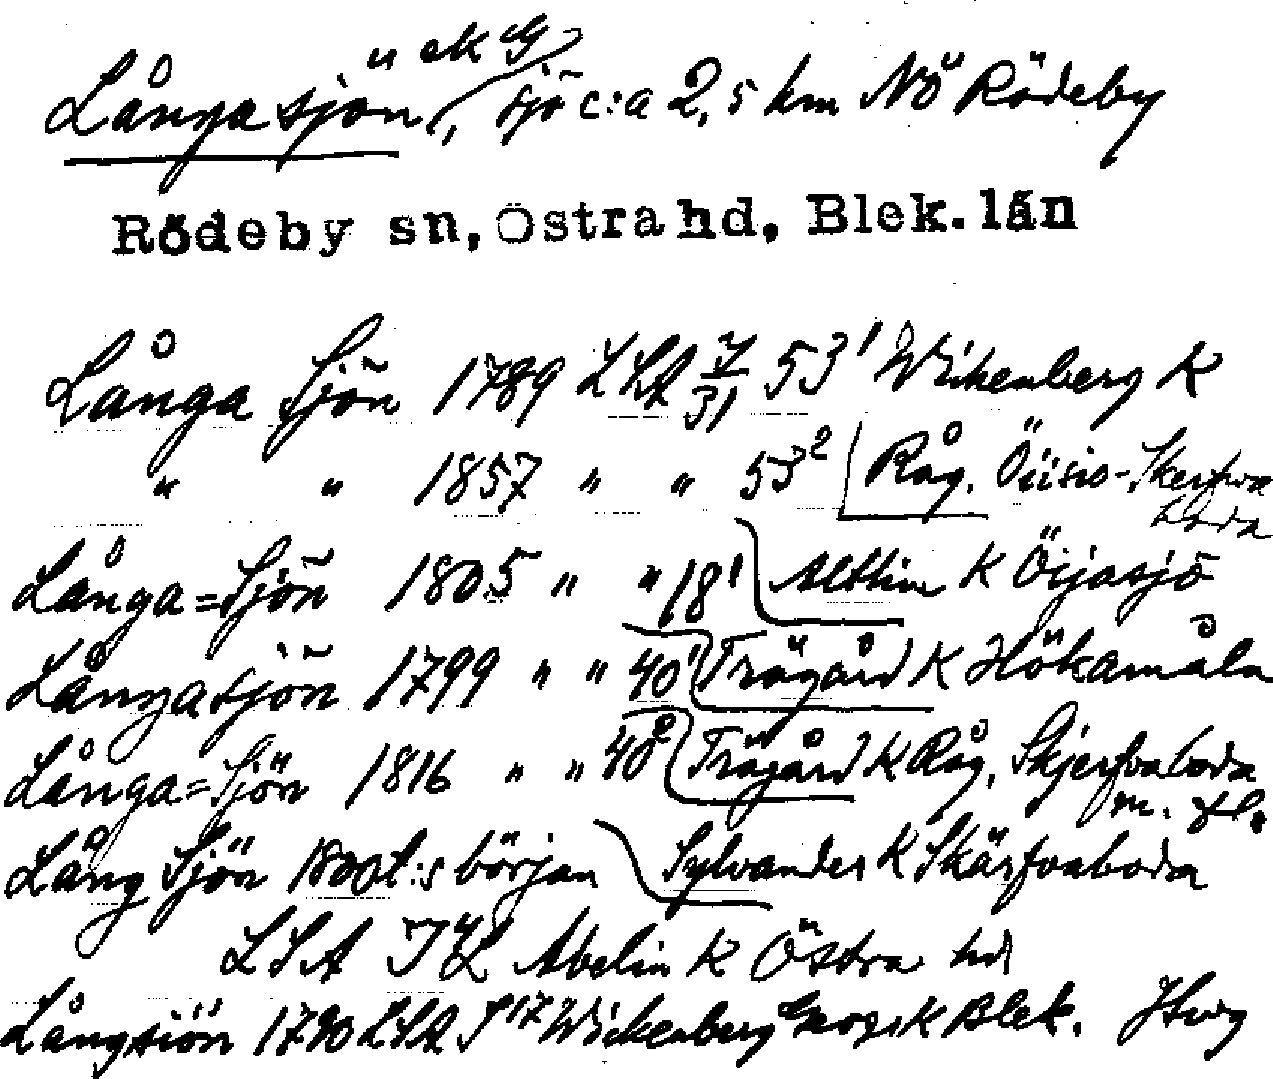 Långasjön, " ek G sjö c:a 2,5 km NÖ Rödeby
Rödeby sn, Östra hd, Blek. län
Långa Sjön 1789 LSA 53¹ Wikenberg K
" " 1857 " " 53² Råg. Öiisio-Skerfva
boda
Långa=Sjön 1805 " " 18¹ K Öijasjö
Långasjön 1799 " " 40¹ Trägård K Hökamåla
Långa=Sjön 1816 " " 40² Trägård K Råg. Skjerfvaboda
m. fl.
Lång Sjön 1800t:s början Sylvander K Skärfvaboda
LSA Abelin K Östra hd
Långsiön 1790 LSA S 17 Wickenberg Geogr K Blek.